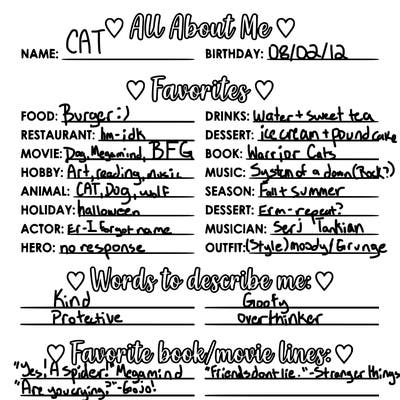 All About Me
NAME: CAT BIRTHDAY: 08/02/12
Favorites
FOOD: Burger :) DRINKS: Water + sweet tea
RESTAURANT: hm-idk DESSERT: ice cream + pound cake
MOVIE: Dog, Megamind, BFG BOOK: Warrior Cats
HOBBY: Art, reading, music MUSIC: System of a down (Rock?)
ANIMAL: CAT, Dog, wolf SEASON: Fall + summer
HOLIDAY: halloween DESSERT: Erm-repeat?
ACTOR: Er-I forgot name MUSICIAN: Serj Tankian
HERO: no response OUTFIT: (Style) moody/Grunge
Words to describe me:
Kind Goofy
Protective Overthinker
Favorite book/movie lines:
"Yes! A spider!" Megamind "Friends dont lie." -Stranger things
"Are you crying?" -Gojo!